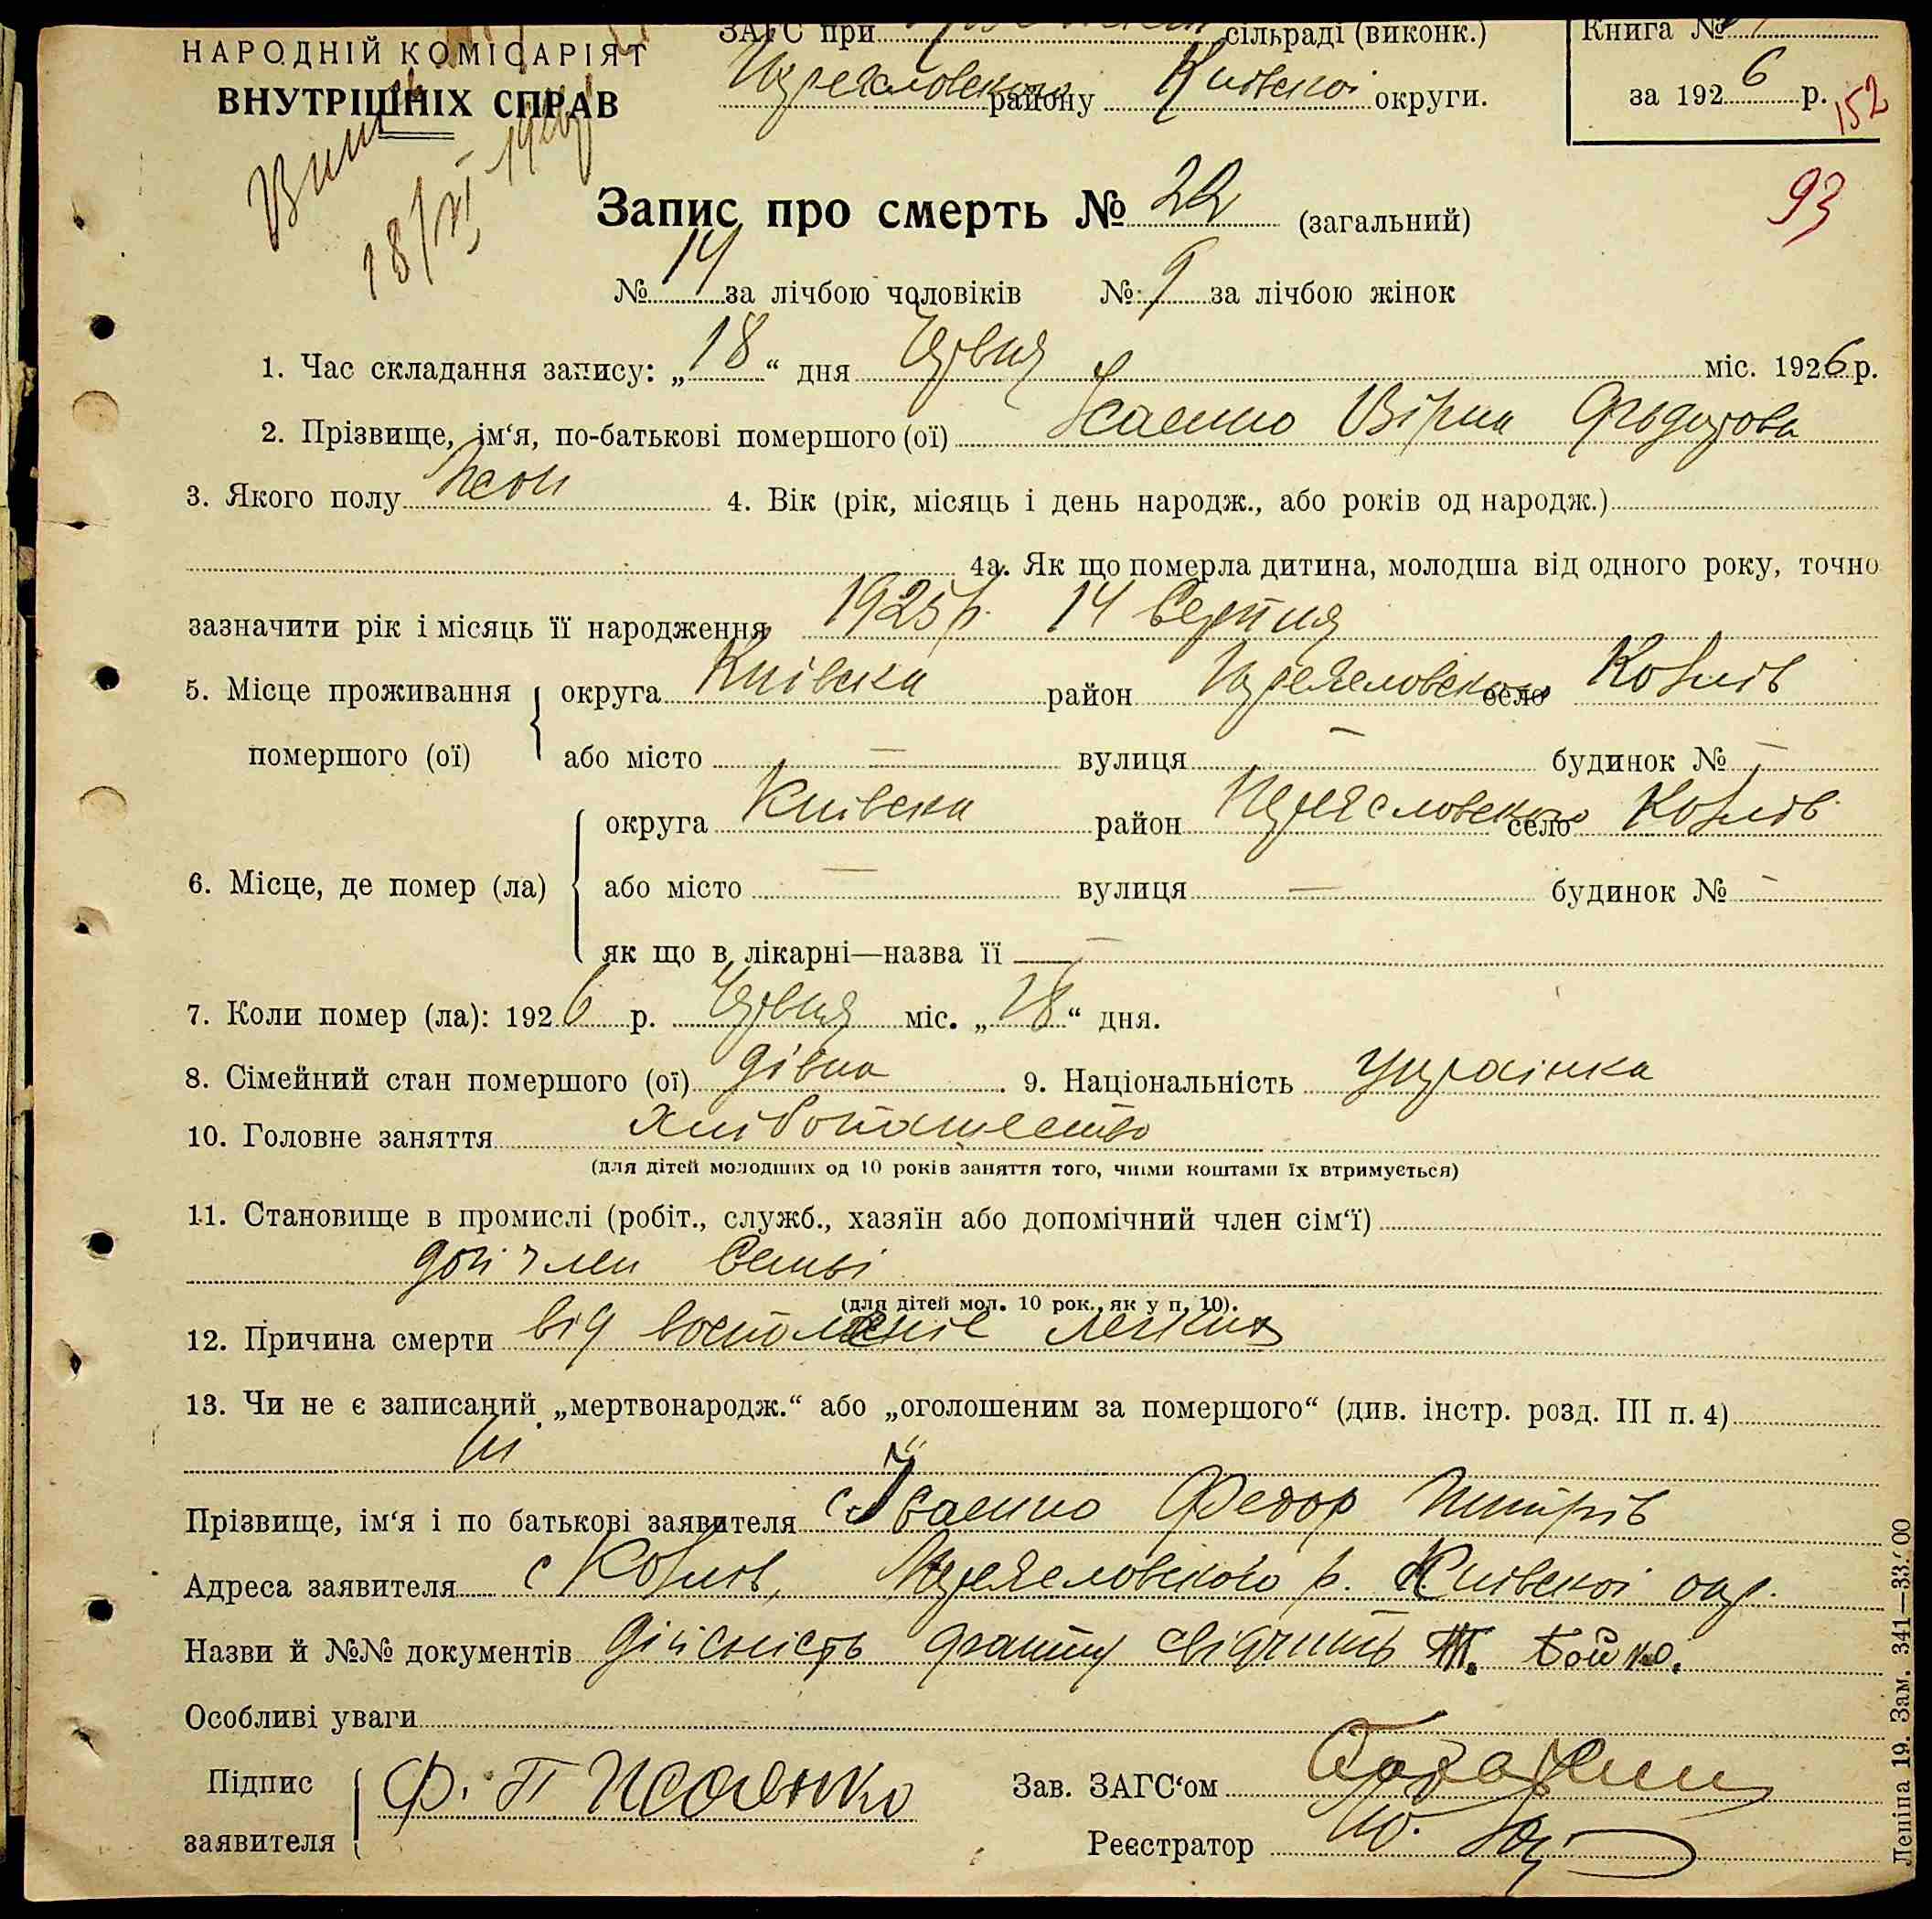 НАРОДНІЙ КОМІСАРІЯТ
ВНУТРІШНІХ СПРАВ
ЗАГС при сільраді (виконк.)
району Київскоі округи.
Книга №
за 1926 р.
152
93
18/VI 1926
Запис про смерть № 22 (загальний)
№ 14 за лічбою чоловіків № 9 за лічбою жінок
1. Час складання запису: „18“ дня Червня міс. 1926 р.
2. Прізвище, ім‘я, по-батькові помершого (ої) Ісаенко Вірка Фьодорова
3. Якого полу жон 4. Вік (рік, місяць і день народж., або років од народж.)
4а. Як що померла дитина, молодша від одного року, точно
зазначити рік і місяць її народження 1925 р. 14 Серпня
5. Місце проживання помершого (ої) округа Київска район Переясловского село Козлів
або місто — вулиця — будинок № —
6. Місце, де помер (ла) округа Київска район Переясловского село Козлів
або місто — вулиця — будинок № —
як що в лікарні—назва її —
7. Коли помер (ла): 1926 р. Червня міс. „18“ дня.
8. Сімейний стан помершого (ої) дівка 9. Національність Украінка
10. Головне заняття Хлібопашество
(для дітей молодших од 10 років заняття того, чиїми коштами їх втримується)
11. Становище в промислі (робіт., служб., хазяїн або допомічний член сім‘ї)
доп член семьі
(для дітей мол. 10 рок., як у п. 10).
12. Причина смерти від легких
13. Чи не є записаний „мертвонародж.“ або „оголошеним за помершого“ (див. інстр. розд. III п. 4)
Ні
Прізвище, ім‘я і по батькові заявителя Ісаенко Федор
Адреса заявителя с Козлів, Переясловского р. Київскоі окр.
Назви й №№ документів дійсність факту свідчить Т. Бойко.
Особливі уваги
Підпис заявителя Ф. П Исаенко
Зав. ЗАГС‘ом
Реєстратор
Леніна 19. Зам. 341—33.000